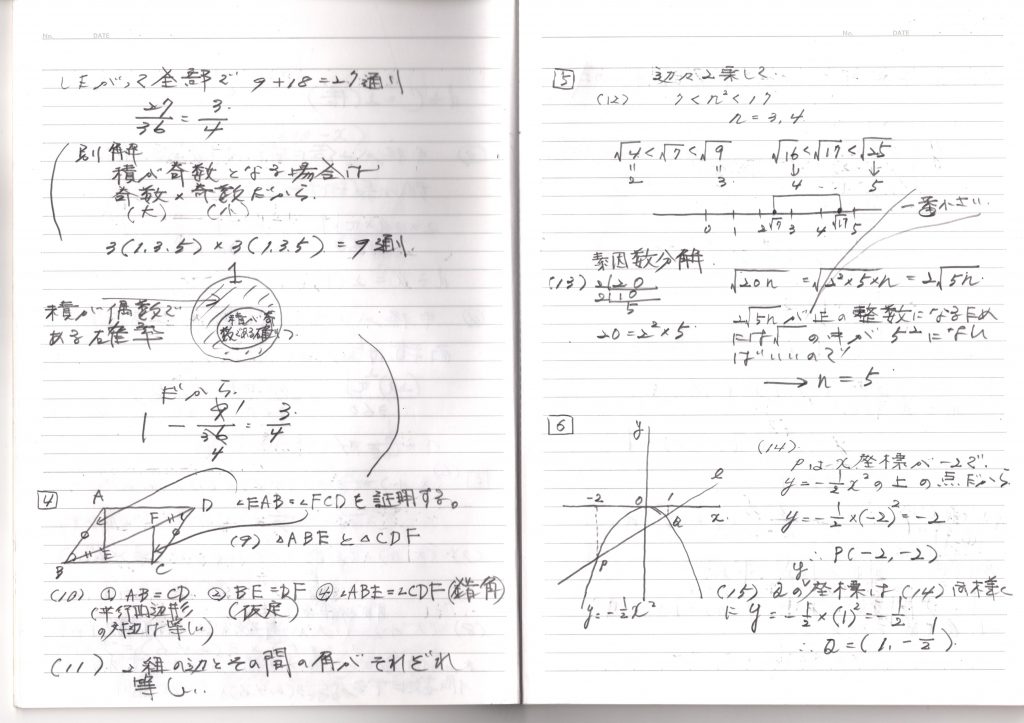 No. DATE
したがって全部で 9+18=27通り
27/36 = 3/4
別解
積が奇数となる場合は
奇数×奇数だから.
(大) (小)
3(1.3.5) × 3(1.3.5) = 9通り.
1
積が偶数で
ある確率
積が奇
数である確率
だから.
1 - 9/36 = 3/4
1
4
4
A D F E B C
∠EAB=∠FCDを証明する。
(9) △ABEと△CDF
(10) ① AB=CD ② BE=DF ④ ∠ABE=∠CDF(錯角)
(平行四辺形 (仮定)
の対辺は等しい)
(11) 2組の辺とその間の角がそれぞれ
等しい..
No. DATE
5 辺々2乗して..
(12) 7<n²<17
n=3,4
√4<√7<√9 √16<√17<√25
2 3 4 5
0 1 2 √7 3 4 √17 5
一番小さい.
素因数分解
(13) 2 20 √20n = √2²×5×n = 2√5n.
2 10
5
20=2²×5
2√5nが正の整数になるため
には√ の中が 5²になれ
ばいいので
→ n=5
6
y
-2 0 1 l
Q x
P
y=-1/2x²
(14)
Pはx座標が-2で.
y=-1/2x²の上の点だから
y=-1/2×(-2)²=-2
∴ P(-2,-2)
y
(15) Qの座標は(14)同様に
に y=-1/2×(1)²=-1/2
∴ Q=(1,-1/2).